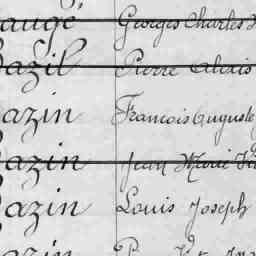 auge Georges Charles
azil Pierre Alexis
azin Francois Auguste
azin Jean Marie
azin Louis Joseph
azin